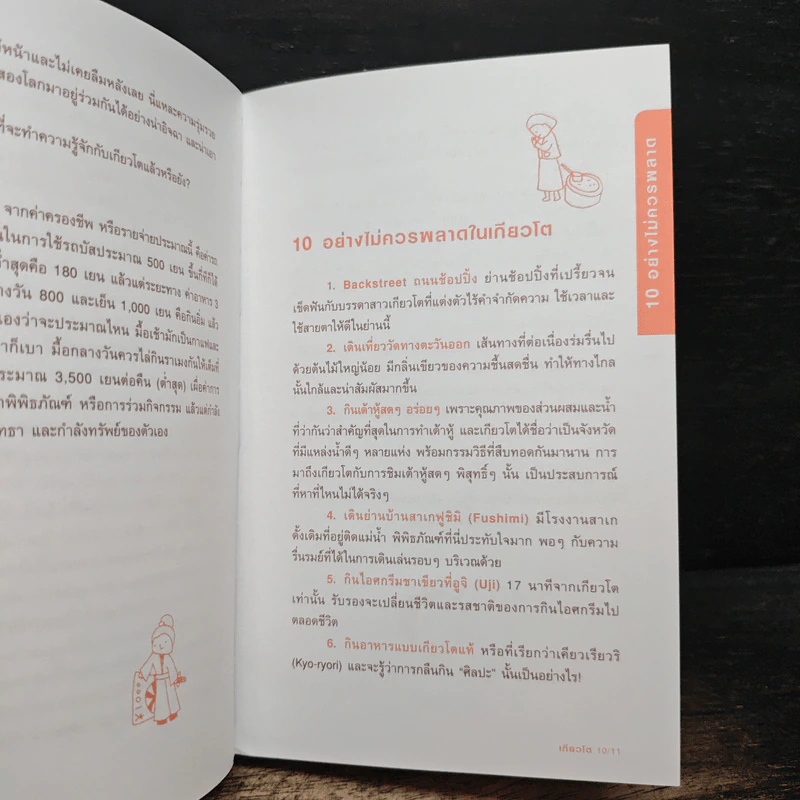 หน้าและไม่เคยลืมหลังเลย นี่แหละความรุ่มรวย
สองโลกมาอยู่ร่วมกันได้อย่างน่าอิจฉา และน่าเอา
ที่จะทำความรู้จักกับเกียวโตแล้วหรือยัง?
จากค่าครองชีพ หรือรายจ่ายประมาณนี้ คือค่ารถ
ในการใช้รถบัสประมาณ 500 เยน ขึ้นที่ที่ก็ได้
ต่ำสุดคือ 180 เยน แล้วแต่ระยะทาง ค่าอาหาร 3
กลางวัน 800 และเย็น 1,000 เยน คือกินอิ่ม แล้ว
เองว่าจะประมาณไหน มื้อเช้ามักเป็นกาแฟและ
ก็เบา มื้อกลางวันควรไล่กินราเมงกันให้เต็มที่
ประมาณ 3,500 เยนต่อคืน (ต่ำสุด) เผื่อค่าการ
พิพิธภัณฑ์ หรือการร่วมกิจกรรม แล้วแต่กำลัง
และกำลังทรัพย์ของตัวเอง
10 อย่างไม่ควรพลาดในเกียวโต
1. Backstreet ถนนช้อปปิ้ง ย่านช้อปปิ้งที่เปรี้ยวจน
เข็ดฟันกับบรรดาสาวเกียวโตที่แต่งตัวไร้คำจำกัดความ ใช้เวลาและ
ใช้สายตาให้ดีในย่านนี้
2. เดินเที่ยววัดทางตะวันออก เส้นทางที่ต่อเนื่องร่มรื่นไป
ด้วยต้นไม้ใหญ่น้อย มีกลิ่นเขียวของความชื้นสดชื่น ทำให้ทางไกล
นั้นใกล้และน่าสัมผัสมากขึ้น
3. กินเต้าหู้สดๆ อร่อยๆ เพราะคุณภาพของส่วนผสมและน้ำ
ที่ว่ากันว่าสำคัญที่สุดในการทำเต้าหู้ และเกียวโตได้ชื่อว่าเป็นจังหวัด
ที่มีแหล่งน้ำดีๆ หลายแห่ง พร้อมกรรมวิธีที่สืบทอดกันมานาน การ
มาถึงเกียวโตกับการชิมเต้าหู้สดๆ พิสุทธิ์ๆ นั้น เป็นประสบการณ์
ที่หาที่ไหนไม่ได้จริงๆ
4. เดินย่านบ้านสาเกฟูชิมิ (Fushimi) มีโรงงานสาเก
ดั้งเดิมที่อยู่ติดแม่น้ำ พิพิธภัณฑ์ที่นี่ประทับใจมาก พอๆ กับความ
รื่นรมย์ที่ได้ในการเดินเล่นรอบๆ บริเวณด้วย
5. กินไอศกรีมชาเขียวที่อูจิ (Uji) 17 นาทีจากเกียวโต
เท่านั้น รับรองจะเปลี่ยนชีวิตและรสชาติของการกินไอศกรีมไป
ตลอดชีวิต
6. กินอาหารแบบเกียวโตแท้ หรือที่เรียกว่าเคียวเรียวริ
(Kyo-ryori) และจะรู้ว่าการกลืนกิน “ศิลปะ” นั้นเป็นอย่างไร!
เกียวโต 10/11
10 อย่างไม่ควรพลาด